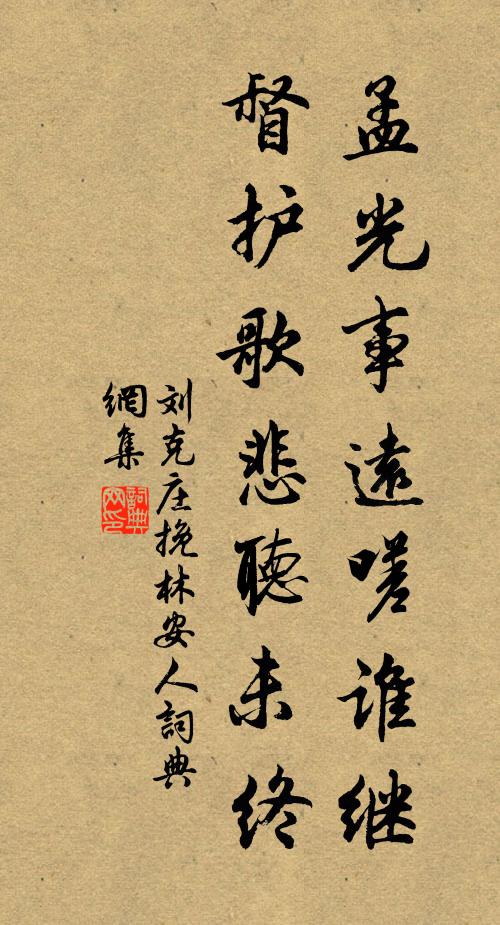 孟光事遠嗟谁继
督护歌悲聽未终
刘克庄挽林安人詞典
網集
詞典
网印